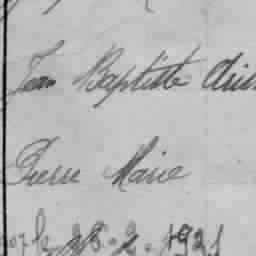 Jean Baptiste
Pierre Marie
le 28.2.1921